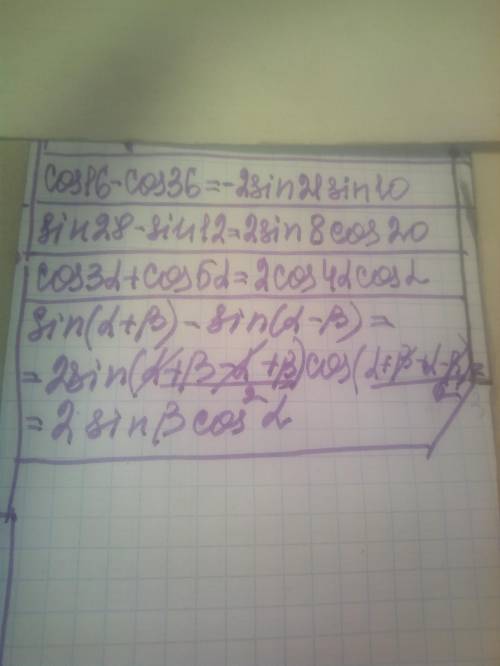 cos16-cos36=-2sin21sin10
sin28-sin12=2sin8cos20
cos3α+cos5α=2cos4αcosα
sin(α+β)-sin(α-β)=
=2sin(α+β-α+β/2)cos(α+β+α-β/2)=
=2sinβcosα